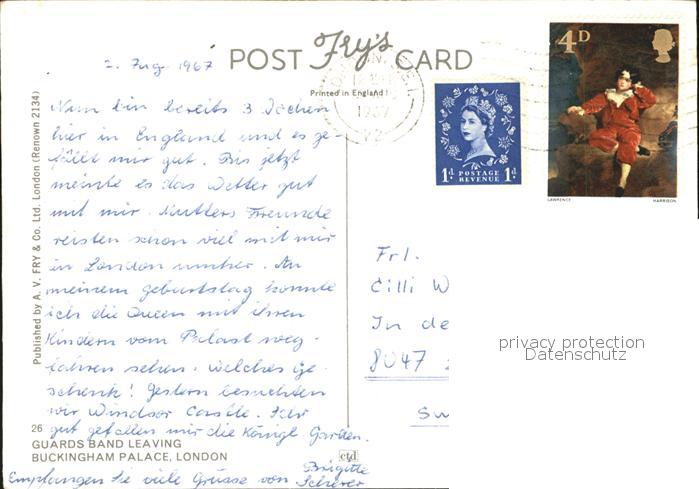 2. Aug 1967
POST Fry's CARD
Printed in England
1967
4D
LAWRENCE
HARRISON
1d POSTAGE REVENUE 1d
Published by A. V. FRY & Co. Ltd. London (Renown 2134)
Nun bin bereits 3 Wochen
hier in England und es ge-
fällt mir gut. Bis jetzt
meinte es das Wetter gut
mit mir. Mutters Freunde
reisten schon viel mit mir
in London umher. An
meinem Geburtstag konnte
ich die Queen mit ihren
Kindern vom Palast weg-
fahren sehen. Welches Ge-
schenk! Gestern besuchten
wir Windsor Castle. Sehr
gut gefallen mir die Königl. Garden.
Empfangen Sie viele Grüsse von Brigitte
Scherer
26
GUARDS BAND LEAVING
BUCKINGHAM PALACE, LONDON
ctd
Frl.
Cilli W
In de
8047
Sw
privacy protection
Datenschutz